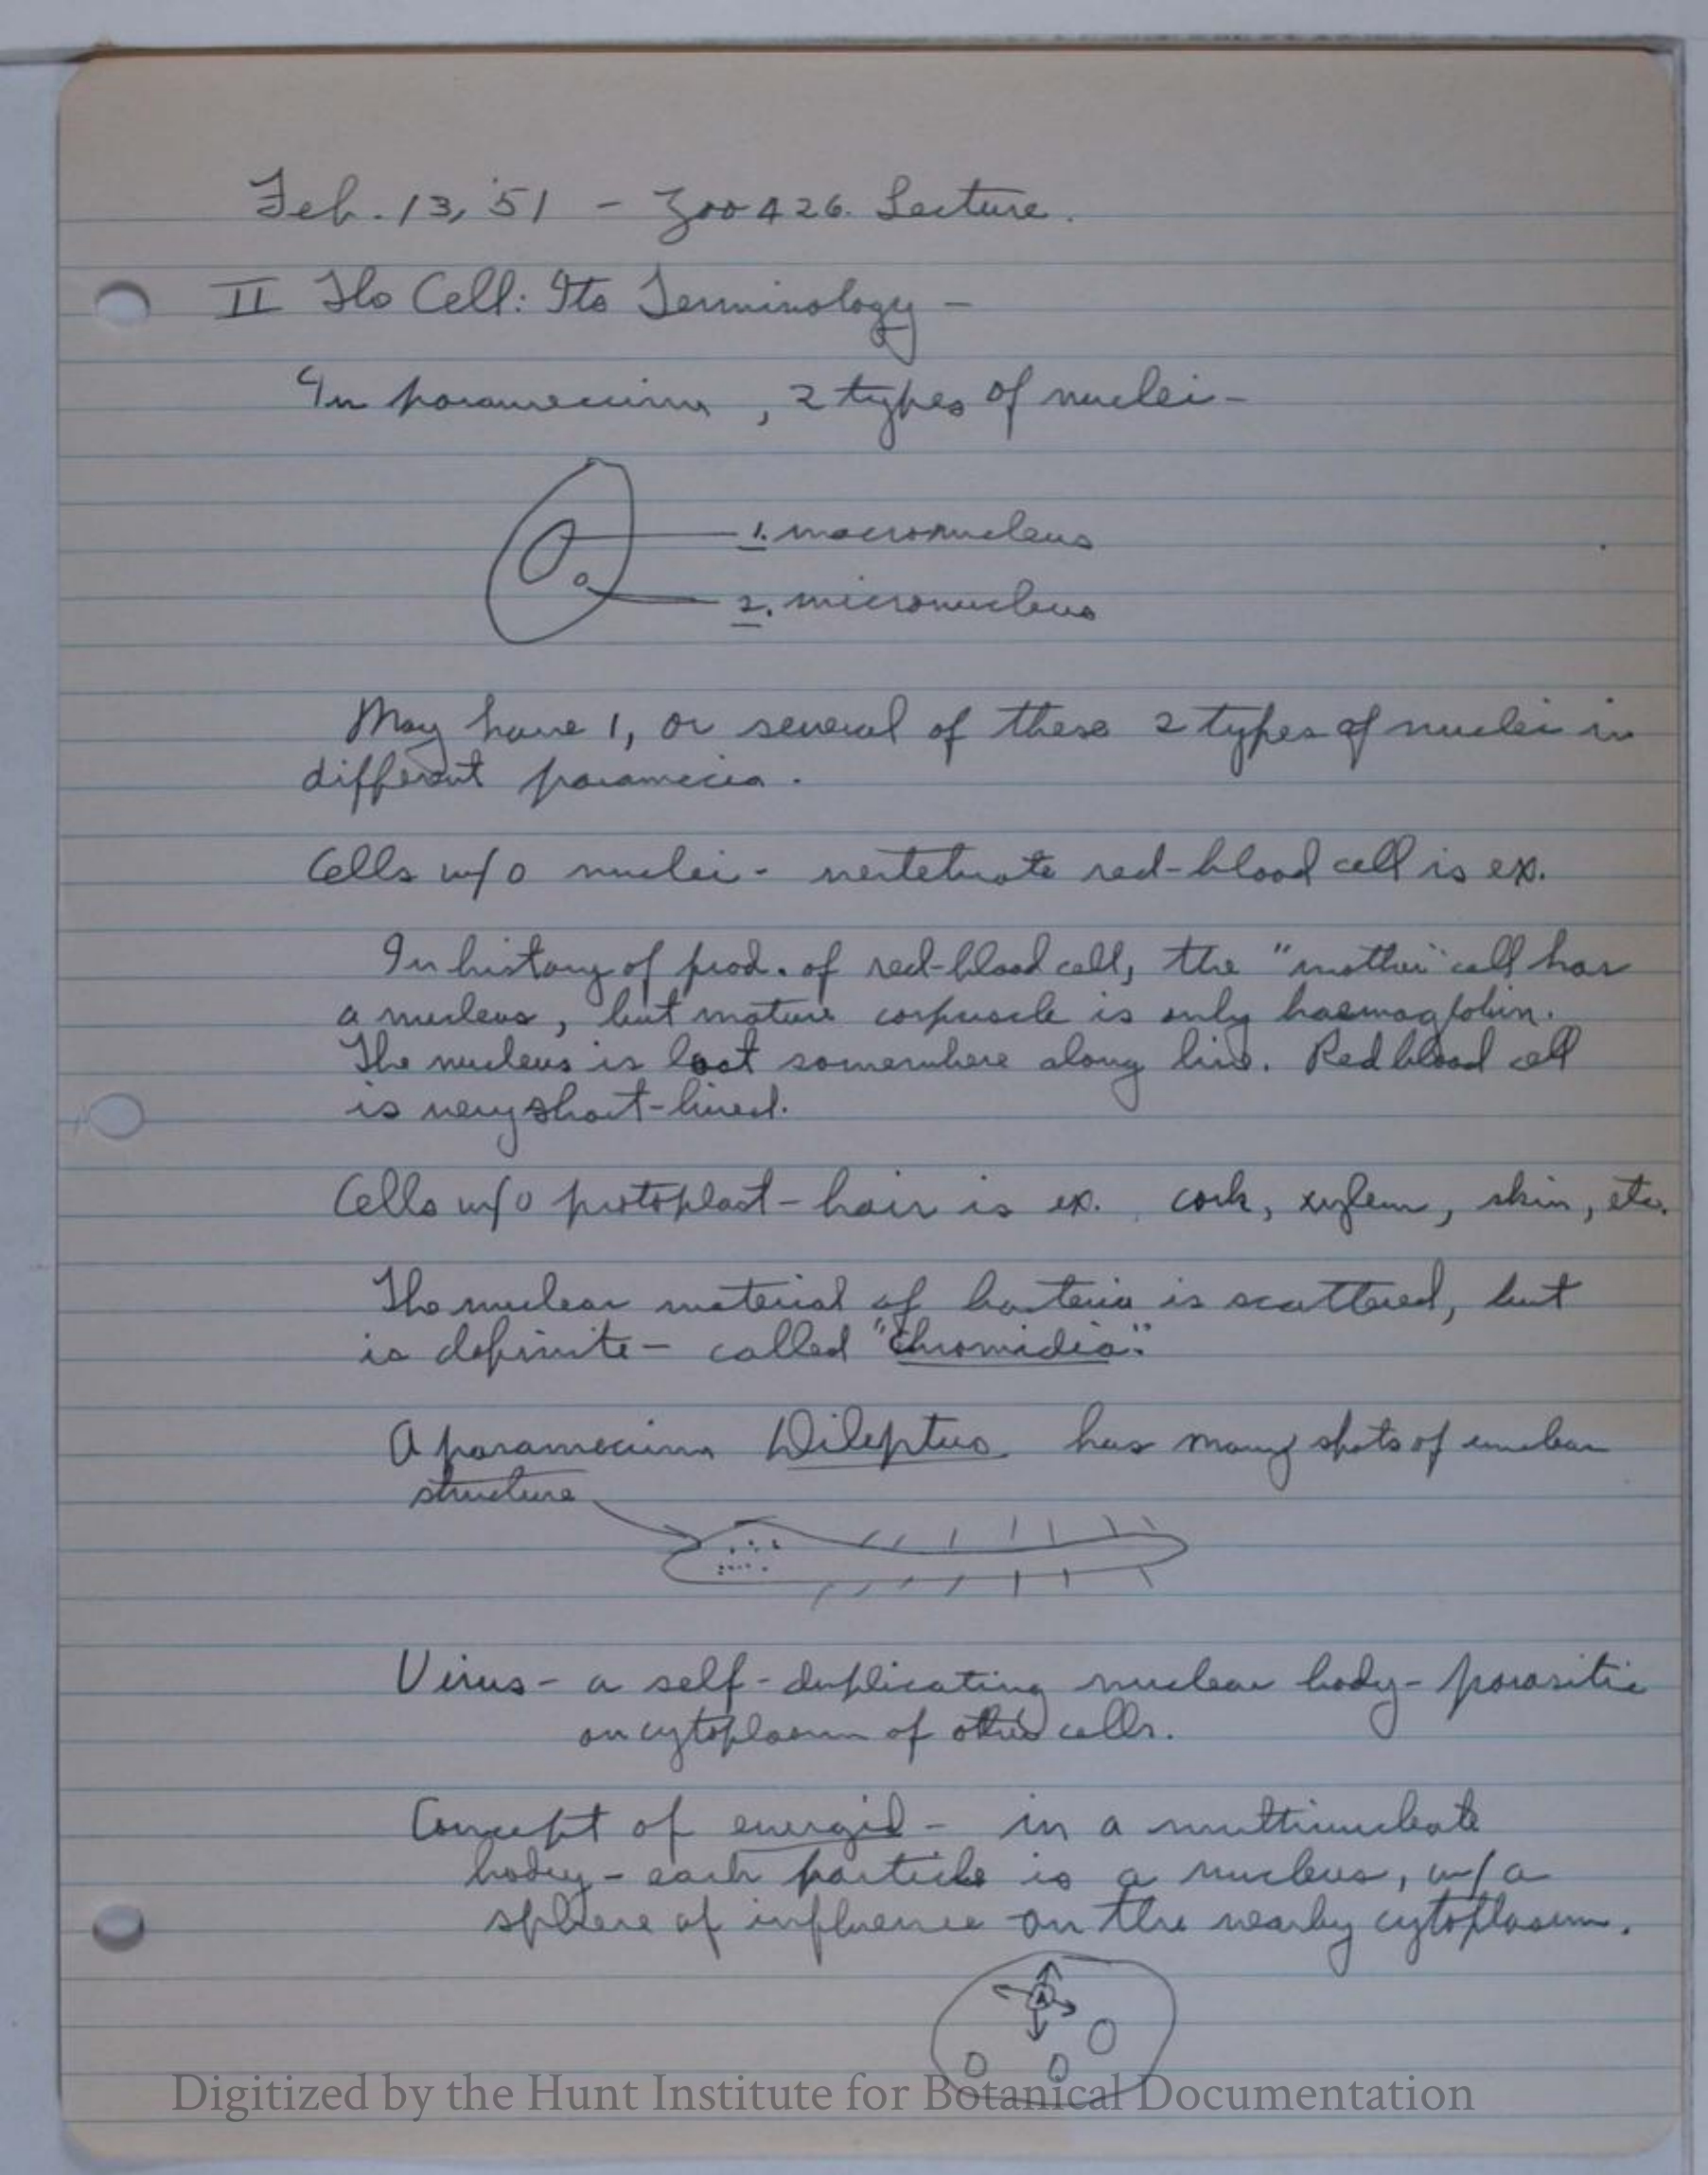 Feb. 13, '51 - Zoo 426. Lecture.
II The Cell: Its Terminology -
In paramecium, 2 types of nuclei -
1. macronucleus
2. micronucleus
May have 1, or several of these 2 types of nuclei in
different paramecia.
Cells w/o nuclei - vertebrate red-blood cell is ex.
In history of prod. of red-blood cell, the "mother" cell has
a nucleus, but mature corpuscle is only haemaglobin.
The nucleus is lost somewhere along line. Red blood cell
is very short-lived.
Cells w/o protoplast - hair is ex. cork, xylem, skin, etc.
The nuclear material of bacteria is scattered, but
is definite - called "Chromidia."
A paramecium Dileptus has many spots of nuclear
structure
Virus - a self-duplicating nuclear body - parasitic
on cytoplasm of other cells.
Concept of energid - in a multinucleate
body - each particle is a nucleus, w/a
sphere of influence on the nearby cytoplasm.
Digitized by the Hunt Institute for Botanical Documentation